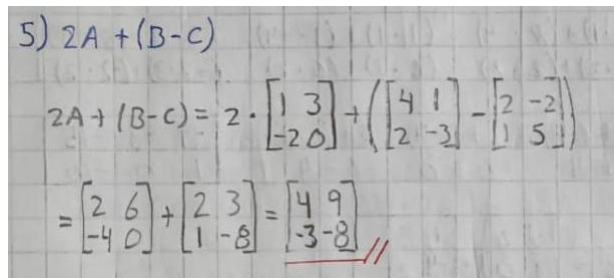 5) 2A + (B-C)
2A + (B-C) = 2 · [1 3; -2 0] + ([4 1; 2 -3] - [2 -2; 1 5])
= [2 6; -4 0] + [2 3; 1 -8] = [4 9; -3 -8] //